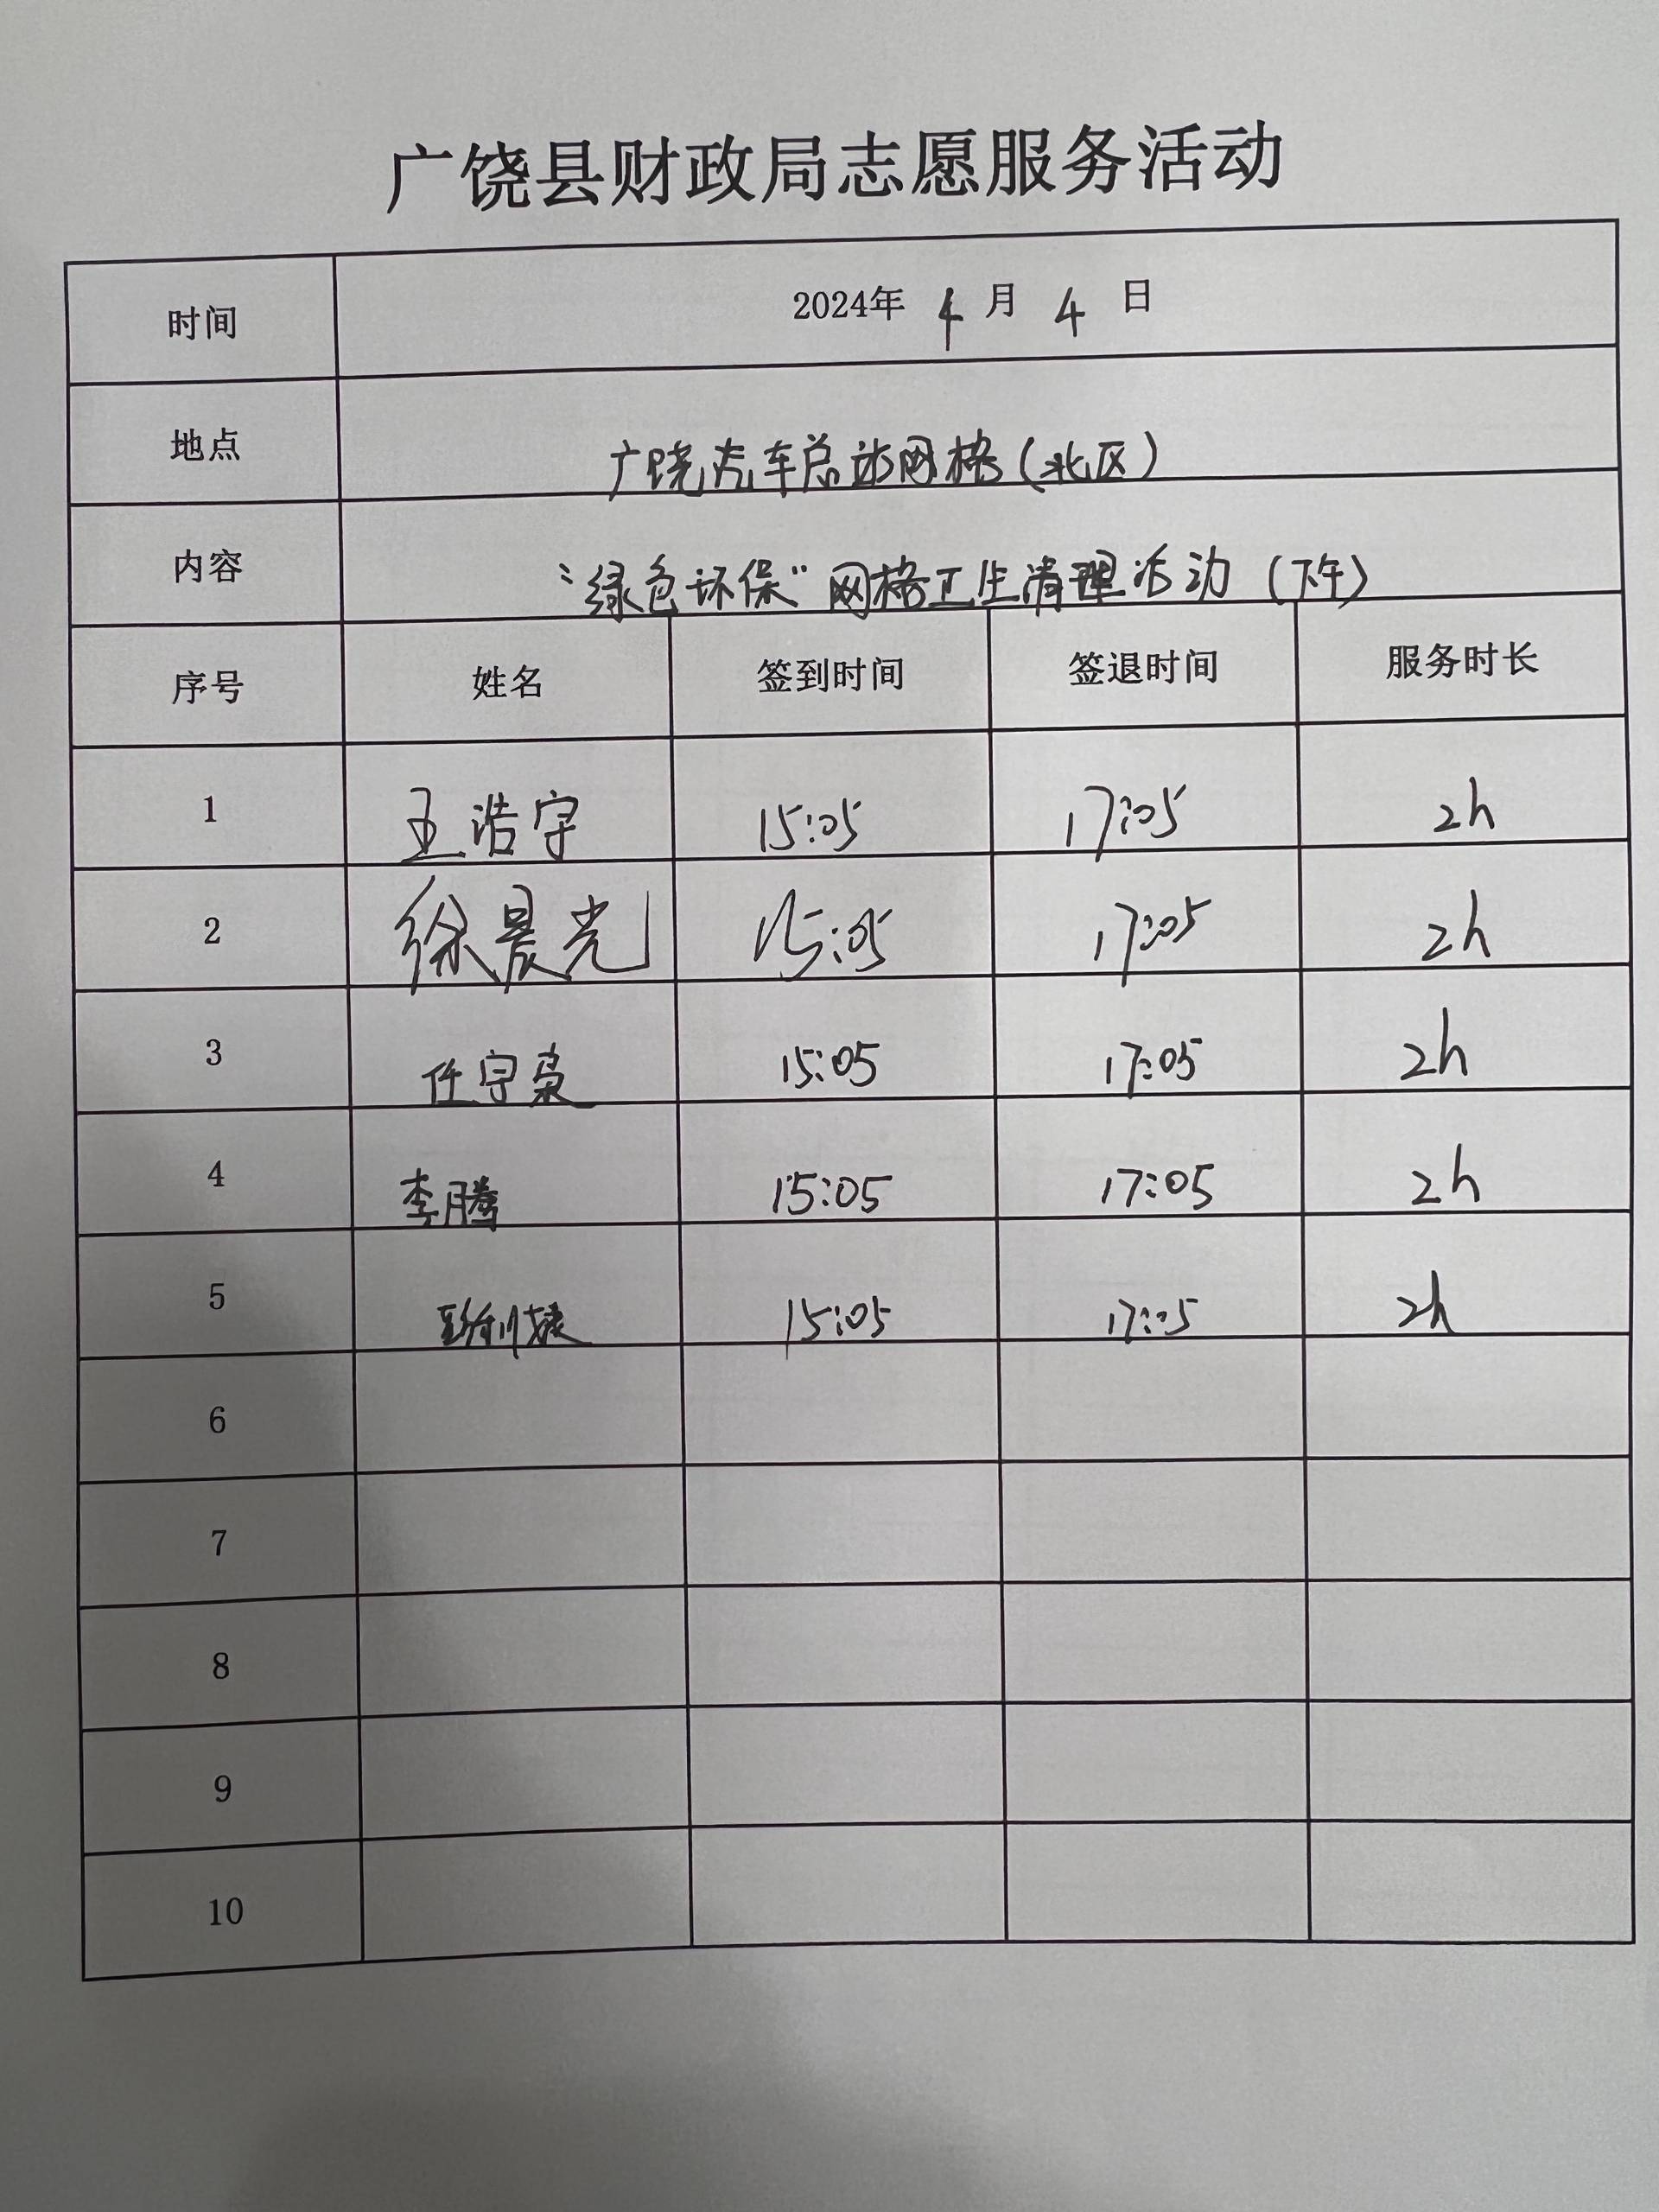 广饶县财政局志愿服务活动
时间 2024年 4 月 4 日
地点 广饶汽车总站网格(北区)
内容 “绿色环保”网格卫生清理活动(下午)
序号 姓名 签到时间 签退时间 服务时长
1 王浩宇 15:05 17:05 2h
2 徐晨光 15:05 17:05 2h
3 任守枭 15:05 17:05 2h
4 李腾 15:05 17:05 2h
5 15:05 17:05 2h
6
7
8
9
10